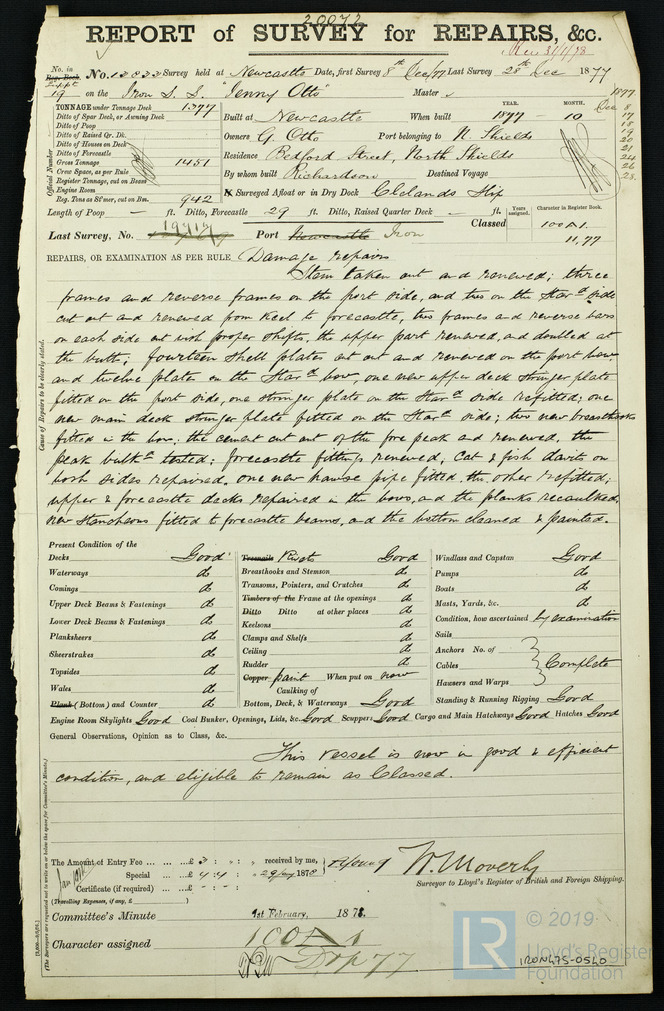 20072
REPORT of SURVEY for REPAIRS, &c.
Rec 31/1/78
No. in Reg. Book. No. 12822 Survey held at Newcastle Date, first Survey 8th Dec/77 Last Survey 28th Dec 1877
Suppt 19 on the Iron S. S. "Jenny Otto" Master
1877
Dec 8
17
18
19
20
21
24
26
28
TONNAGE under Tonnage Deck 1377
Ditto of Spar Deck, or Awning Deck
Ditto of Poop
Ditto of Raised Qr. Dk.
Ditto of Houses on Deck
Ditto of Forecastle
Gross Tonnage 1451
Crew Space, as per Rule
Register Tonnage, cut on Beam
Engine Room
Reg. Tons as St'mer, cut on Bm. 942
Official Number
YEAR. MONTH.
Built at Newcastle When built 1877 — 10
Owners G. Otto Port belonging to N. Shields
Residence Bedford Street, North Shields
By whom built Richardson Destined Voyage
Surveyed Afloat or in Dry Dock Clelands Slip
Length of Poop — ft. Ditto, Forecastle 29 ft. Ditto, Raised Quarter Deck — ft.
Classed Years assigned. Character in Register Book.
100A1.
11,77
Last Survey, No. Port Newcastle Iron
REPAIRS, OR EXAMINATION AS PER RULE Damage repairs
Cause of Repairs to be clearly stated.
Stem taken out and renewed; three
frames and reverse frames on the port side, and two on the Starbd side
cut out and renewed from keel to forecastle, two frames and reverse bars
on each side cut with proper shifts, the upper part renewed, and doubled at
the butts; fourteen shell plates cut out and renewed on the port bow
and twelve plates on the Starbd bow, one new upper deck stringer plate
fitted on the port side, one stringer plate on the Starbd side refitted; one
new main deck stringer plate fitted on the Starbd side; two new breasthooks
fitted in the bow; the cement cut out of the fore peak and renewed, the
peak bulkd tested; forecastle fittings renewed, cat & fish davits on
both sides repaired. one new hawse pipe fitted, the other refitted;
upper & forecastle decks repaired in the bows, and the planks recaulked,
new stancheons fitted to forecastle beams, and the bottom cleaned & painted.
Present Condition of the
Decks Good
Waterways do
Comings do
Upper Deck Beams & Fastenings do
Lower Deck Beams & Fastenings do
Planksheers do
Sheerstrakes do
Topsides do
Wales do
Plank (Bottom) and Counter do
Treenails Rivets Good
Breasthooks and Stemson do
Transoms, Pointers, and Crutches do
Timbers of the Frame at the openings do
Ditto Ditto at other places do
Keelsons do
Clamps and Shelfs do
Ceiling do
Rudder do
Copper paint When put on now
Caulking of
Bottom, Deck, & Waterways Good
Windlass and Capstan Good
Pumps do
Boats do
Masts, Yards, &c. do
Condition, how ascertained by examination
Sails
Anchors No. of
Cables Complete
Hawsers and Warps
Standing & Running Rigging Good
Engine Room Skylights Good Coal Bunker, Openings, Lids, &c. Good Scuppers Good Cargo and Main Hatchways Good Hatches Good
General Observations, Opinion as to Class, &c.
This vessel is now in good & efficient
condition, and eligible to remain as Classed.
(The Surveyors are requested not to write on or below the space for Committee's Minute.)
The Amount of Entry Fee ... ... ...£ 3 : " : " received by me,
Special ... ... ...£ 4 : 4 : " 29 Jany 1878
Certificate (if required) ... ...£ - : - : -
(Travelling Expenses, if any, £ )
W. Moverly
Surveyor to Lloyd's Register of British and Foreign Shipping.
Committee's Minute 1st February, 1878.
Character assigned 100A1
© 2019
LR
Lloyd's Register
Foundation
IRON475-0540